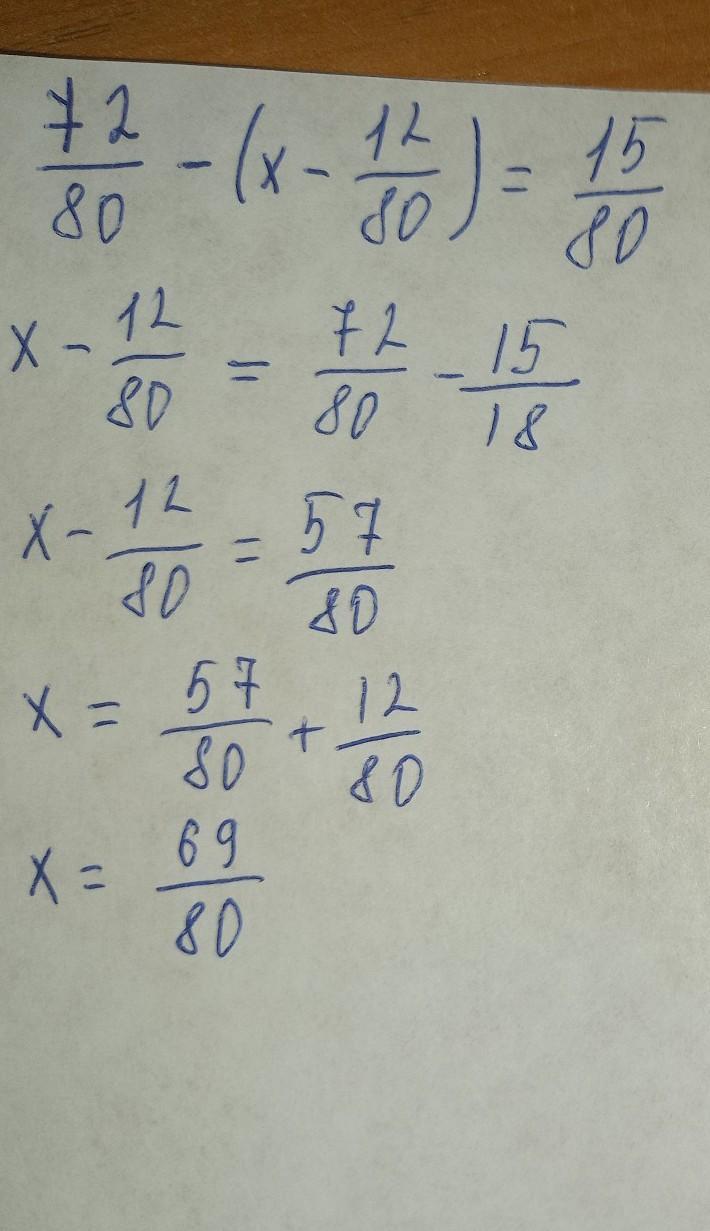 72/80 - (x - 12/80) = 15/80
x - 12/80 = 72/80 - 15/18
x - 12/80 = 57/80
x = 57/80 + 12/80
x = 69/80